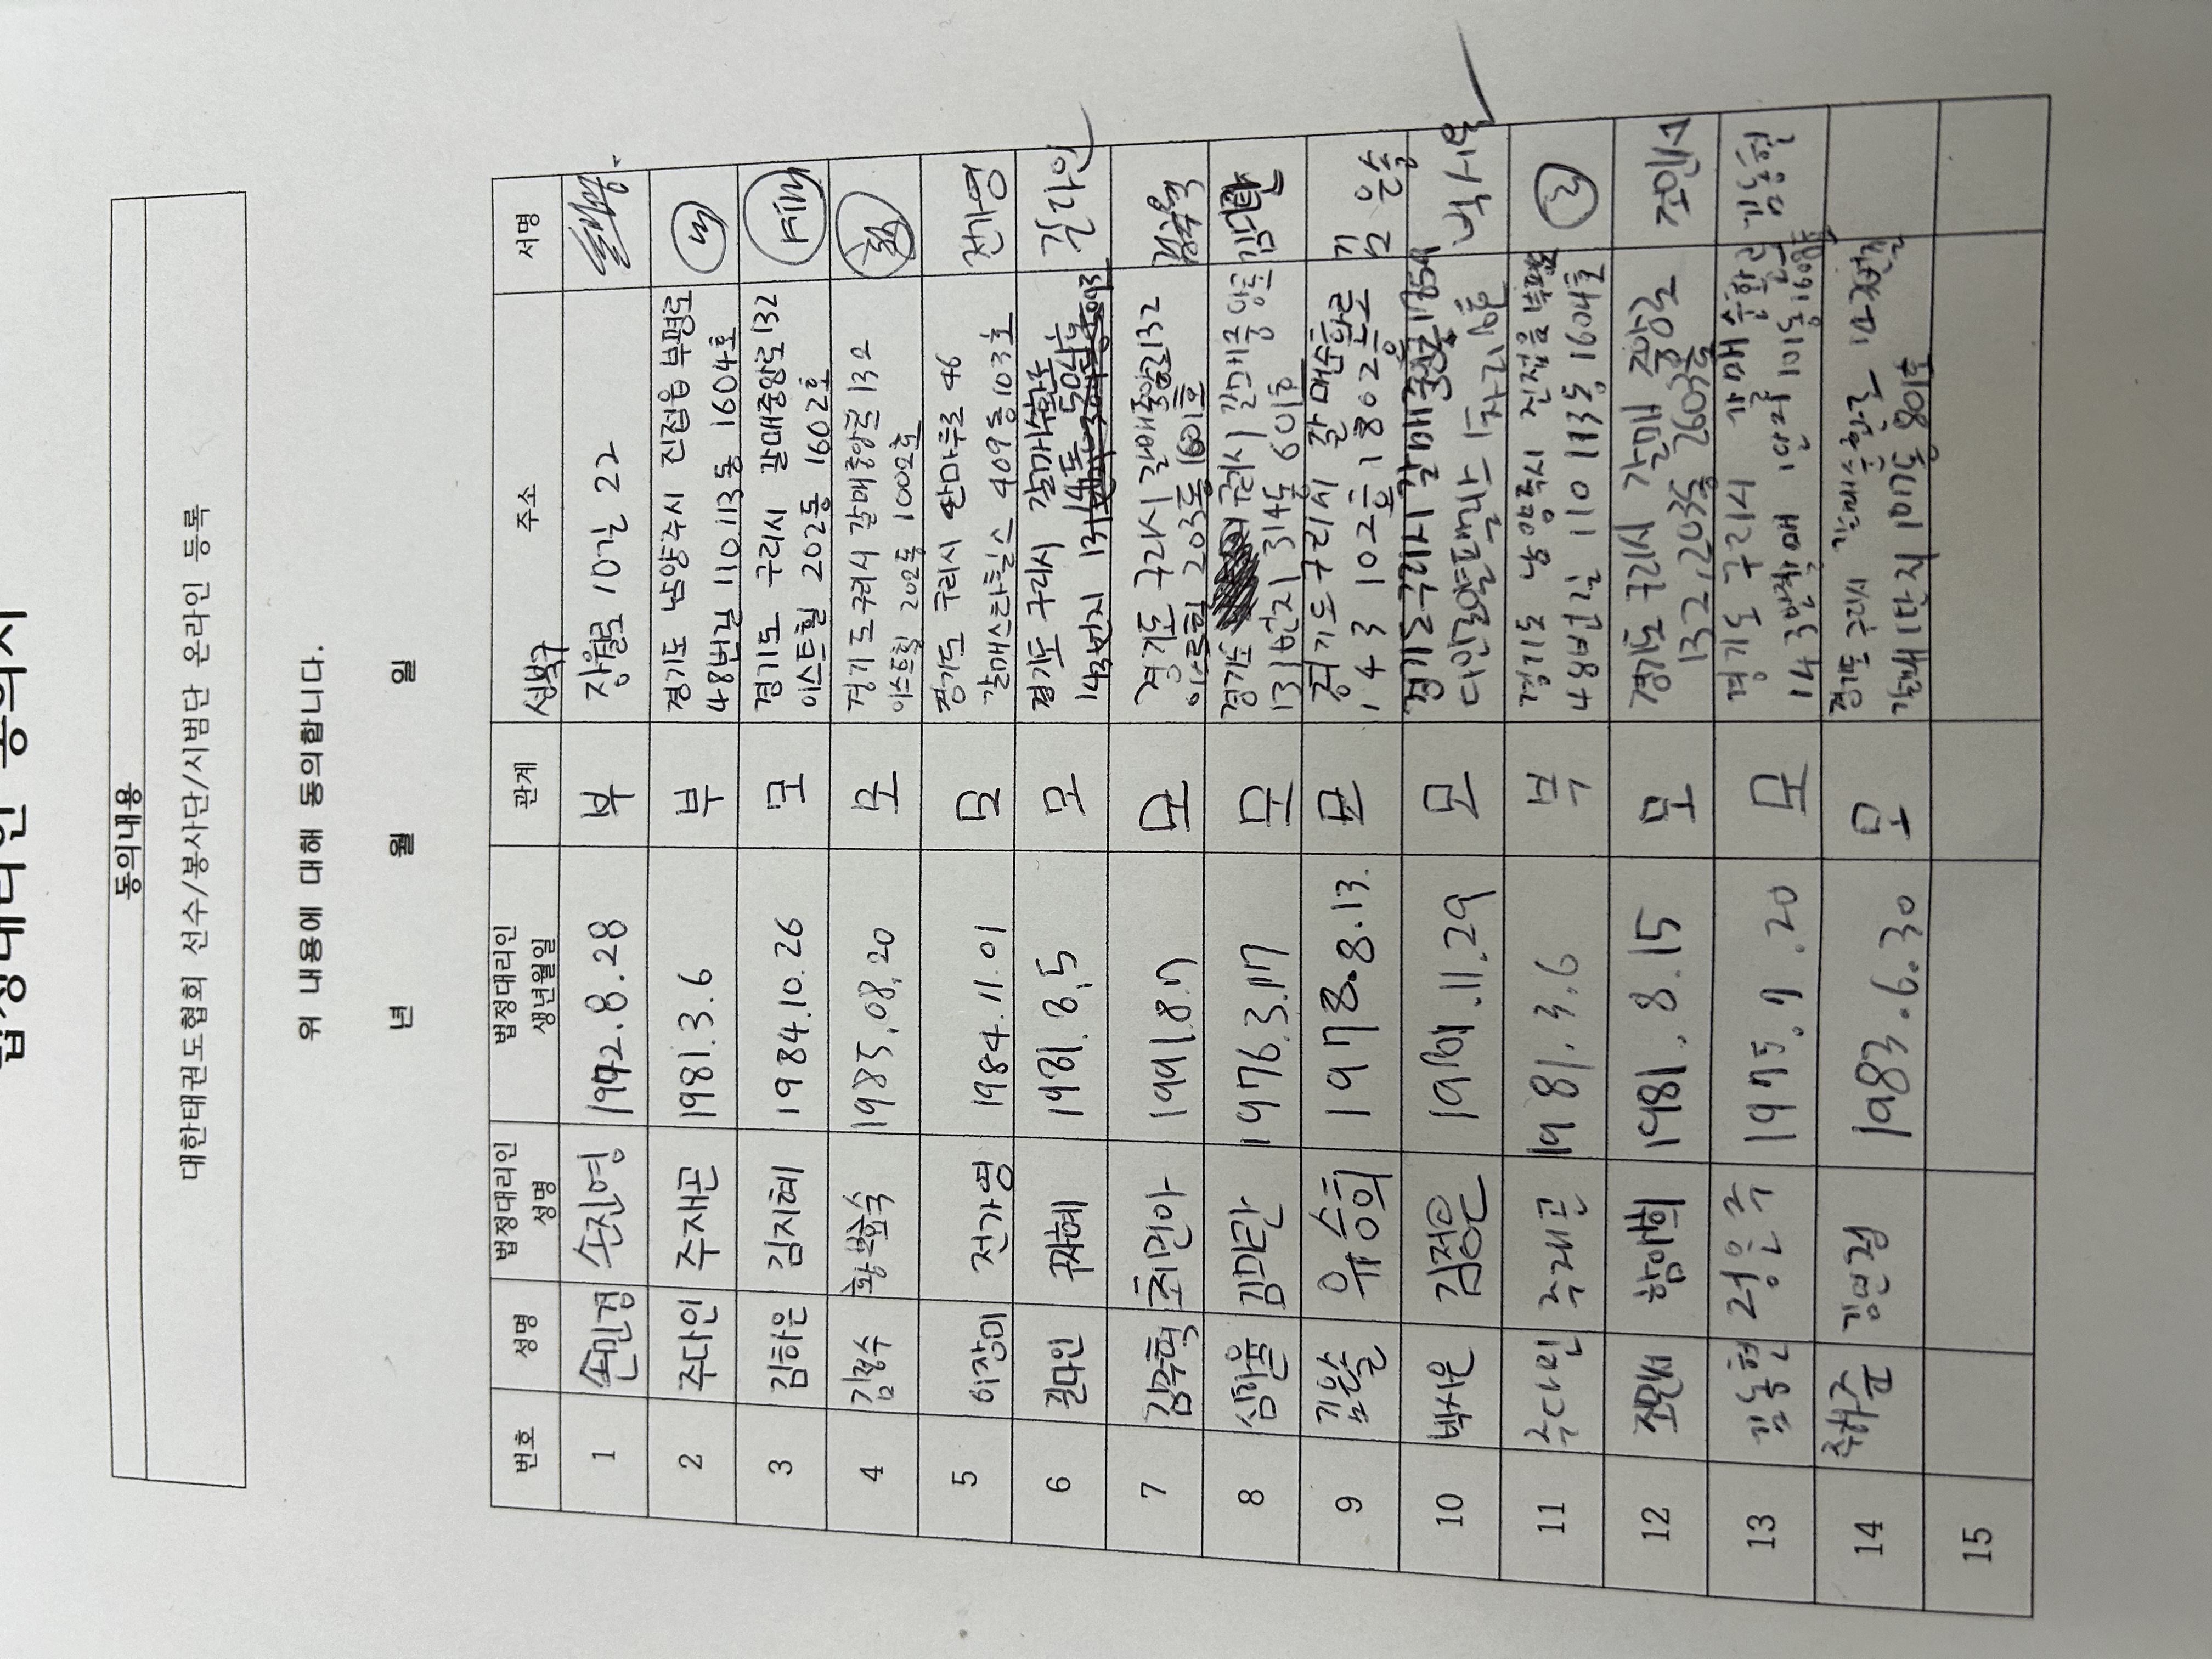 법정대리인 동의서
동의내용
대한태권도협회 선수/봉사단/시범단 온라인 등록
위 내용에 대해 동의합니다.
년 월 일
번호 성명 법정대리인 성명 법정대리인 생년월일 관계 주소 서명
1 손민겸 손진영 8.28 부 성북구 장월로 10길 22
2 주다인 주재곤 1981.3.6 부 경기도 남양주시 진접읍 부평로
48번길 110 113동 1604호
3 김하은 김지혜 1984.10.26 모 경기도 구리시 갈매중앙로 132
이스트힐 202동 1602호
4 김철수 황 숙 1985.08.20 모 경기도 구리시 갈매중앙로 132
이스트힐 202동 1002호
5 이장미 전가영 1984.11.01 모 경기도 구리시 산마루로 46
갈매스타힐스 409동 103호 전가영
6 길다인 1981.8.5 모 경기도 구리시 갈매순환로
143번지 길다인
7 김수혁 최민아 1991.8.7 모 경기도 구리시 갈매중앙로 132
이스트힐 203동 1601호 김수혁
8 심하율 김미란 1976.3.17 모 경기도 구리시 갈매중앙로
131번지 314동 601호
9 김은솔 유승희 1978.8.13. 모 경기도 구리시 갈매순환로
143 102호 1802호 김은솔
10 박서윤 김정은 11.29 모 경기도 구리시 갈매
박서윤
11 주다민 주재곤 1981.3.6 부 경기도 남양주시 진접읍 부평로
48번길 110 113동 1604호
12 조민서 함아희 1981.8.15 모 경기도 구리시 갈매 중앙로
132, 203동 2603호 조민서
13 김동현 정은주 1975.7.20 모 경기도 구리시 갈매 순환로
143번지 김동현
14 주하준 김면정 1983.6.30 모 경기도 구리시 갈매순환로
갈매1단지 107동 801호
15